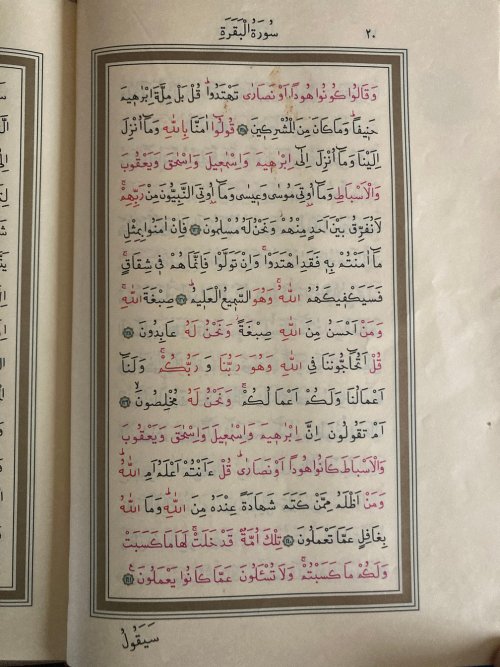 سُورَةُ الْبَقَرَةِ ٢٠
وَقَالُوا كُونُوا هُودًا اَوْ نَصَارٰى تَهْتَدُوا قُلْ بَلْ مِلَّةَ اِبْرٰهٖيمَ
حَنٖيفًا وَمَا كَانَ مِنَ الْمُشْرِكٖينَ ۝١٣٥ قُولُٓوا اٰمَنَّا بِاللّٰهِ وَمَٓا اُنْزِلَ
اِلَيْنَا وَمَٓا اُنْزِلَ اِلٰٓى اِبْرٰهٖيمَ وَاِسْمٰعٖيلَ وَاِسْحٰقَ وَيَعْقُوبَ
وَالْاَسْبَاطِ وَمَٓا اُوتِيَ مُوسٰى وَعٖيسٰى وَمَٓا اُوتِيَ النَّبِيُّونَ مِنْ رَبِّهِمْۚ
لَا نُفَرِّقُ بَيْنَ اَحَدٍ مِنْهُمْۘ وَنَحْنُ لَهُ مُسْلِمُونَ ۝١٣٦ فَاِنْ اٰمَنُوا بِمِثْلِ
مَٓا اٰمَنْتُمْ بِهٖ فَقَدِ اهْتَدَوْاۚ وَاِنْ تَوَلَّوْا فَاِنَّمَا هُمْ فٖي شِقَاقٍۚ
فَسَيَكْفٖيكَهُمُ اللّٰهُۚ وَهُوَ السَّمٖيعُ الْعَلٖيمُۜ ۝١٣٧ صِبْغَةَ اللّٰهِۚ
وَمَنْ اَحْسَنُ مِنَ اللّٰهِ صِبْغَةًۘ وَنَحْنُ لَهُ عَابِدُونَ ۝١٣٨
قُلْ اَتُحَٓاجُّونَنَا فِي اللّٰهِ وَهُوَ رَبُّنَا وَ رَبُّكُمْۚ وَلَنَٓا
اَعْمَالُنَا وَلَكُمْ اَعْمَالُكُمْۚ وَنَحْنُ لَهُ مُخْلِصُونَۙ ۝١٣٩
اَمْ تَقُولُونَ اِنَّ اِبْرٰهٖيمَ وَاِسْمٰعٖيلَ وَاِسْحٰقَ وَيَعْقُوبَ
وَالْاَسْبَاطَ كَانُوا هُودًا اَوْ نَصَارٰىۜ قُلْ ءَاَنْتُمْ اَعْلَمُ اَمِ اللّٰهُۜ
وَمَنْ اَظْلَمُ مِمَّنْ كَتَمَ شَهَادَةً عِنْدَهُ مِنَ اللّٰهِۜ وَمَا اللّٰهُ
بِغَافِلٍ عَمَّا تَعْمَلُونَ ۝١٤٠ تِلْكَ اُمَّةٌ قَدْ خَلَتْۚ لَهَا مَا كَسَبَتْ
وَلَكُمْ مَا كَسَبْتُمْۚ وَلَا تُسْـَٔلُونَ عَمَّا كَانُوا يَعْمَلُونَ ۝١٤١
سَيَقُولُ